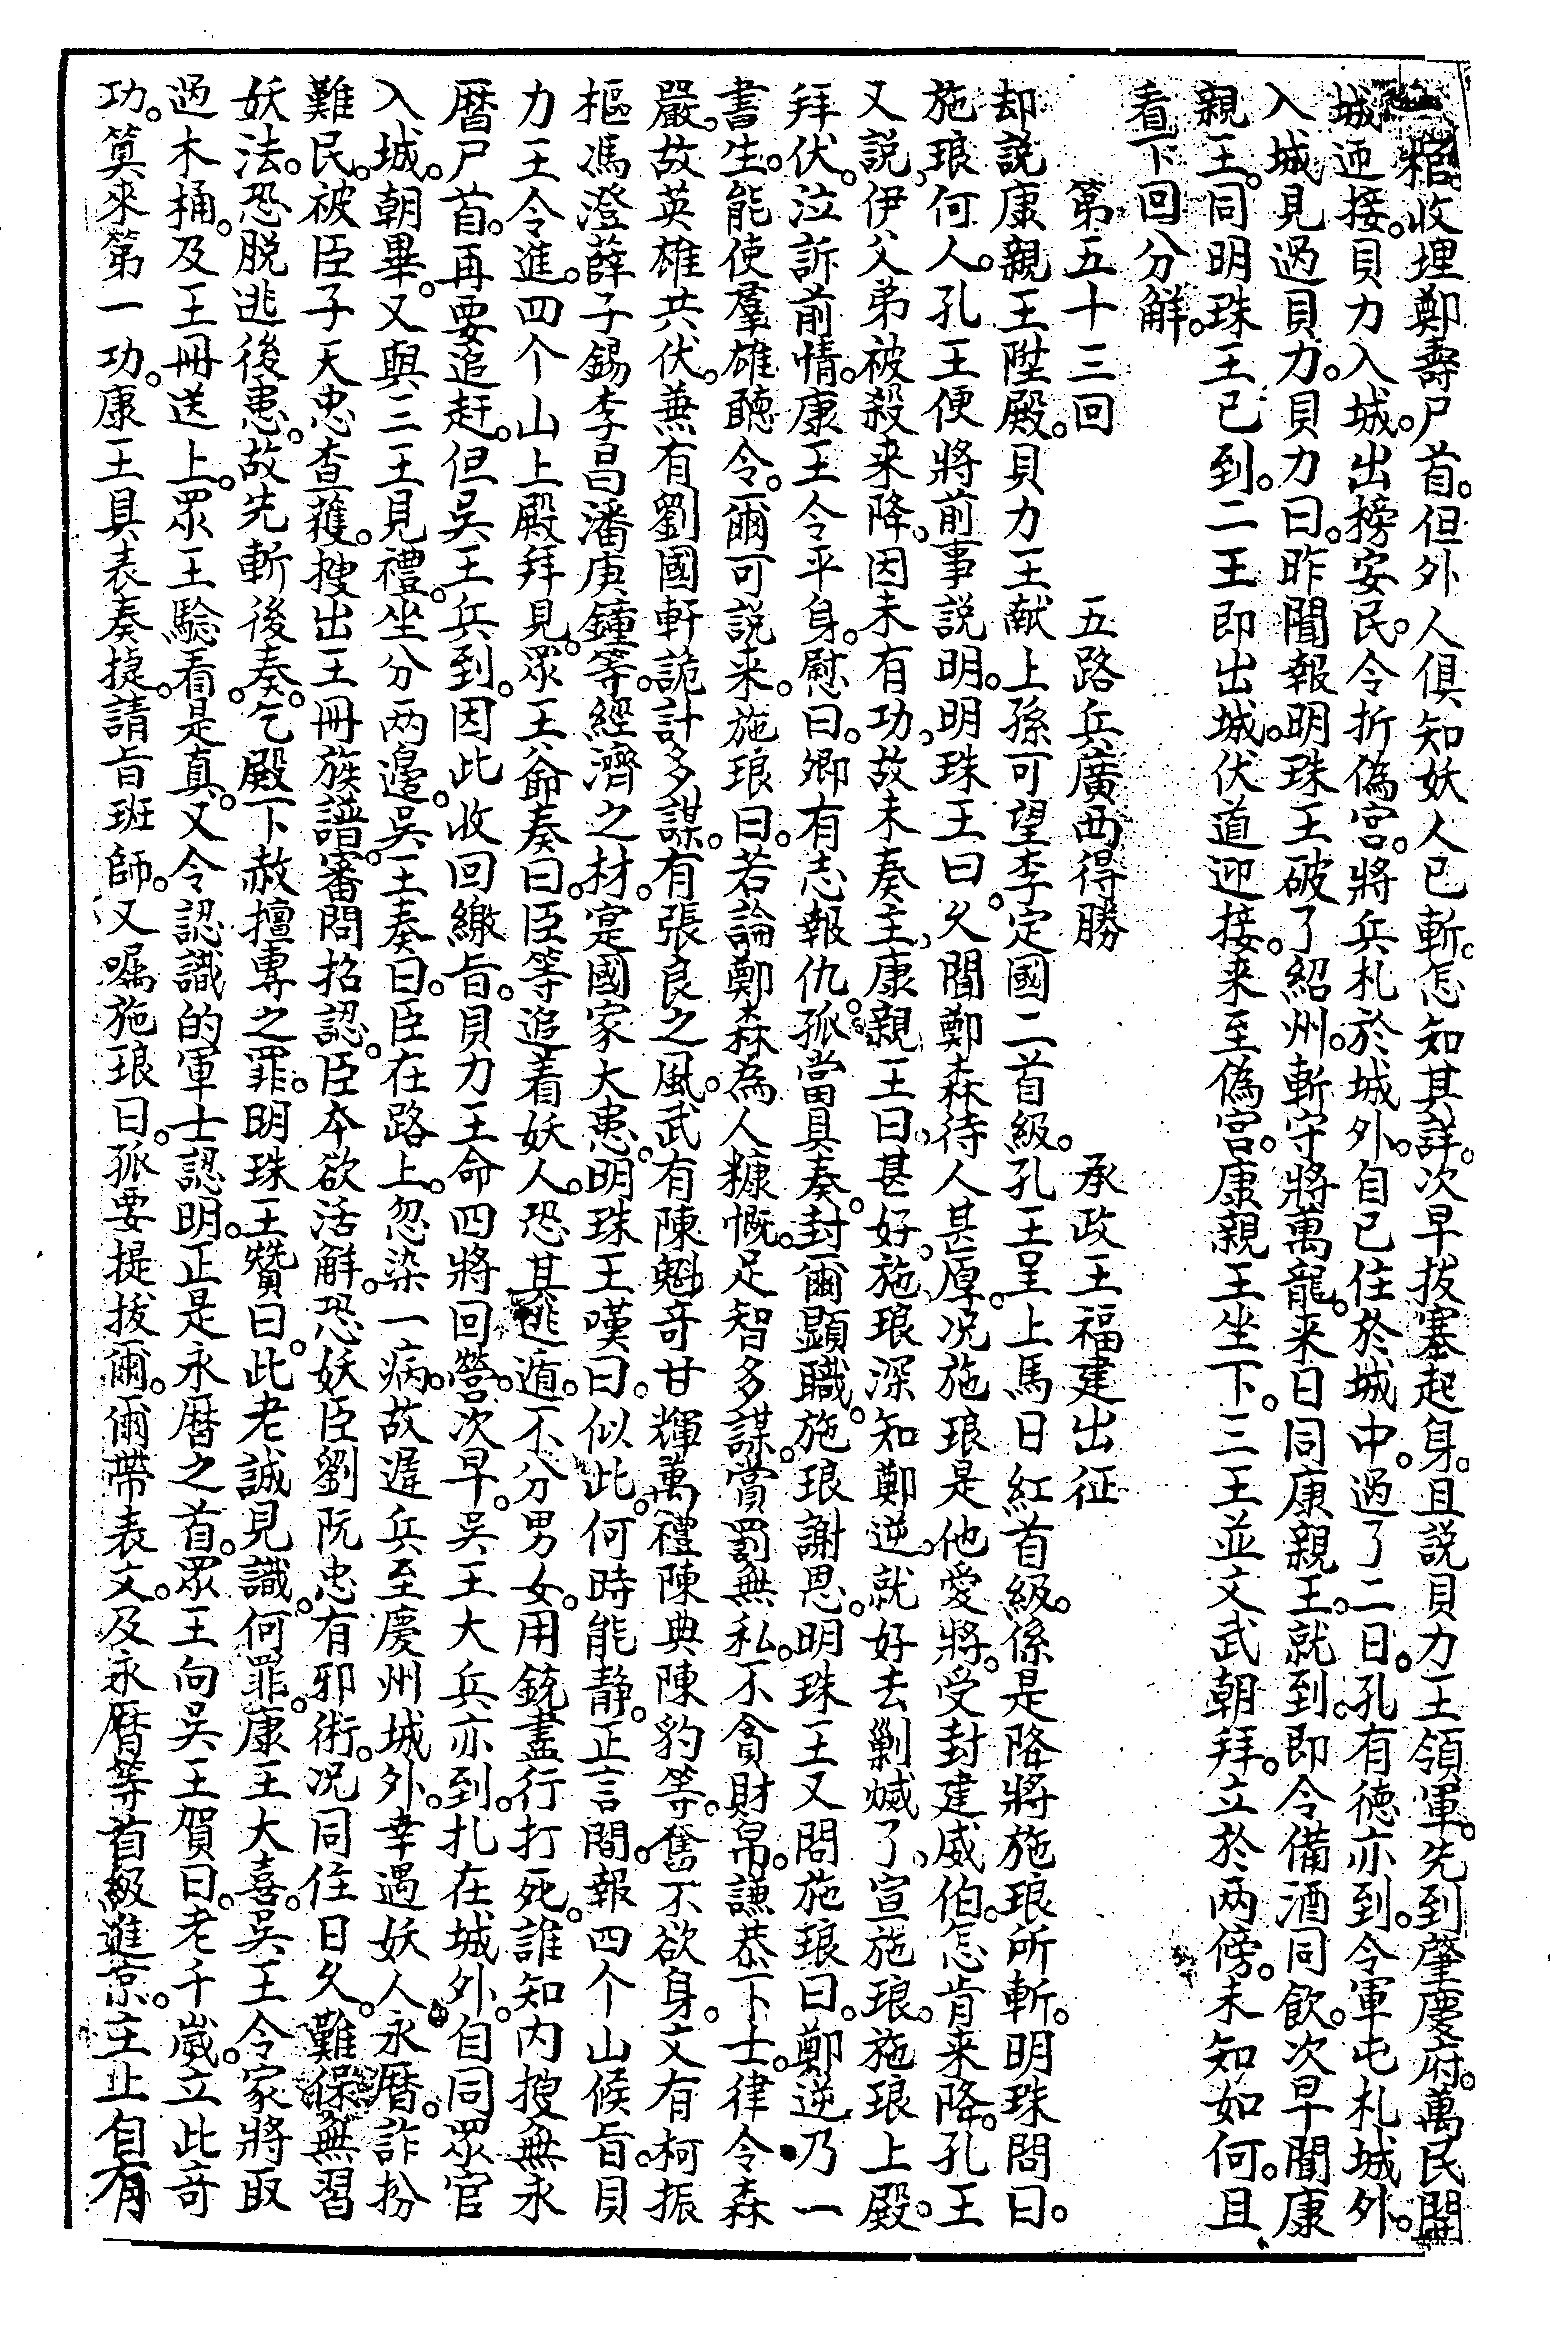 棺收埋鄭壽尸首。但外人俱知妖人已斬。怎知其詳。次早拔寨起身。且説貝力王領軍。先到肇慶府。萬民開
城迊接。貝力入城。出榜安民。令折偽宮。將兵札於城外。自已住於城中。過了二日。孔有德亦到。令軍屯札城外。
入城見過貝力。貝力曰。昨聞報明珠王破了紹州。斬守將萬龍。来日同康親王。就到。即令備酒同飲。次早聞康
親王。同明珠王已到。二王即出城。伏道迎接。来至偽宮。康親王坐下。三王並文武朝拜。立於两傍。未知如何。且
看下回分解。
第五十三回　五路兵廣西得勝　承政王福建出征
却説康親王陞殿。貝力王献上孫可望李定國二首級。孔王呈上馬日紅首級。係是降將施琅所斬。明珠問曰。
施琅何人。孔王便將前事説明。明珠王曰。久聞鄭森待人甚厚。况施琅是他愛將。受封建威伯。怎肯来降。孔王
又説。伊父弟被殺来降。因未有功。故未奏主。康親王曰。甚好。施琅深知鄭逆。就好去剿滅了。宣施琅。施琅上殿。
拜伏。泣訴前情。康王令平身。慰曰。卿有志報仇。孤當具奏。封爾顯職。施琅謝恩。明珠王又問施琅曰。鄭逆乃一
書生。能使羣雄聽令。爾可説来。施琅曰。若論鄭森為人糠慨。足智多謀。賞罰無私。不貪財帛。謙恭下士。律令森
嚴。故英雄共伏。兼有劉國軒詭計多謀。有張良之風。武有陳魁奇甘輝萬禮陳典陳豹等。奮不欲身。文有柯振
樞馮澄薛子錫李昌潘庚鐘等。經濟之材。寔國家大患。明珠王嘆曰。似此。何時能靜。正言間。報四个山候旨。貝
力王令進。四个山上殿拜見。眾王爺奏曰。臣等追着妖人。恐其逃遁。不分男女。用銃盡行打死。誰知内搜無永
曆尸首。再要追赶。但吳王兵到。因此收回繳旨。貝力王命四將回營。次早。吳王大兵亦到。扎在城外。自同眾官
入城。朝畢。又與三王見禮。坐分两邉。吳王奏曰。臣在路上。忽染一病。故遲兵至慶州城外。幸遇妖人永曆。詐扮
難民。被臣子天忠查獲。搜出王冊族譜。審問招認。臣本欲活解。恐妖臣劉阮忠有邪術。况同住日久。難保無習
妖法。恐脱逃後患。故先斬後奏。乞殿下赦擅專之罪。明珠王贊曰。此老誠見識。何罪。康王大喜。吳王令家將取
過木桶。及王冊送上。眾王驗看是真。又令認識的軍士認明。正是永曆之首。眾王向吳王賀曰。老千嵗。立此奇
功。算來第一功。康王具表奏捷。請旨班師。又嘱施琅曰。孤要提拔爾。爾帶表文。及永曆等首級進京。主上自有